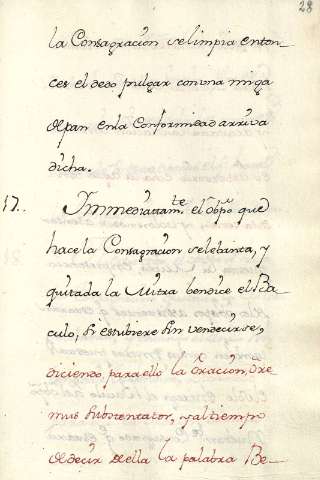 28
la Consagracion se limpia enton-
ces el dedo pulgar con una miga
de pan en la Conformidad arriva
dicha.
17. Immediattam.te el obpo que
hace la Consagracion se lebanta, y
quitada la Mitra bendice el Ba-
culo, si estubiere sin vendecirse,
diciendo para ello la oracion, Ore
mus Sustentator, y al tiempo
de decir de ella la palabra Be-